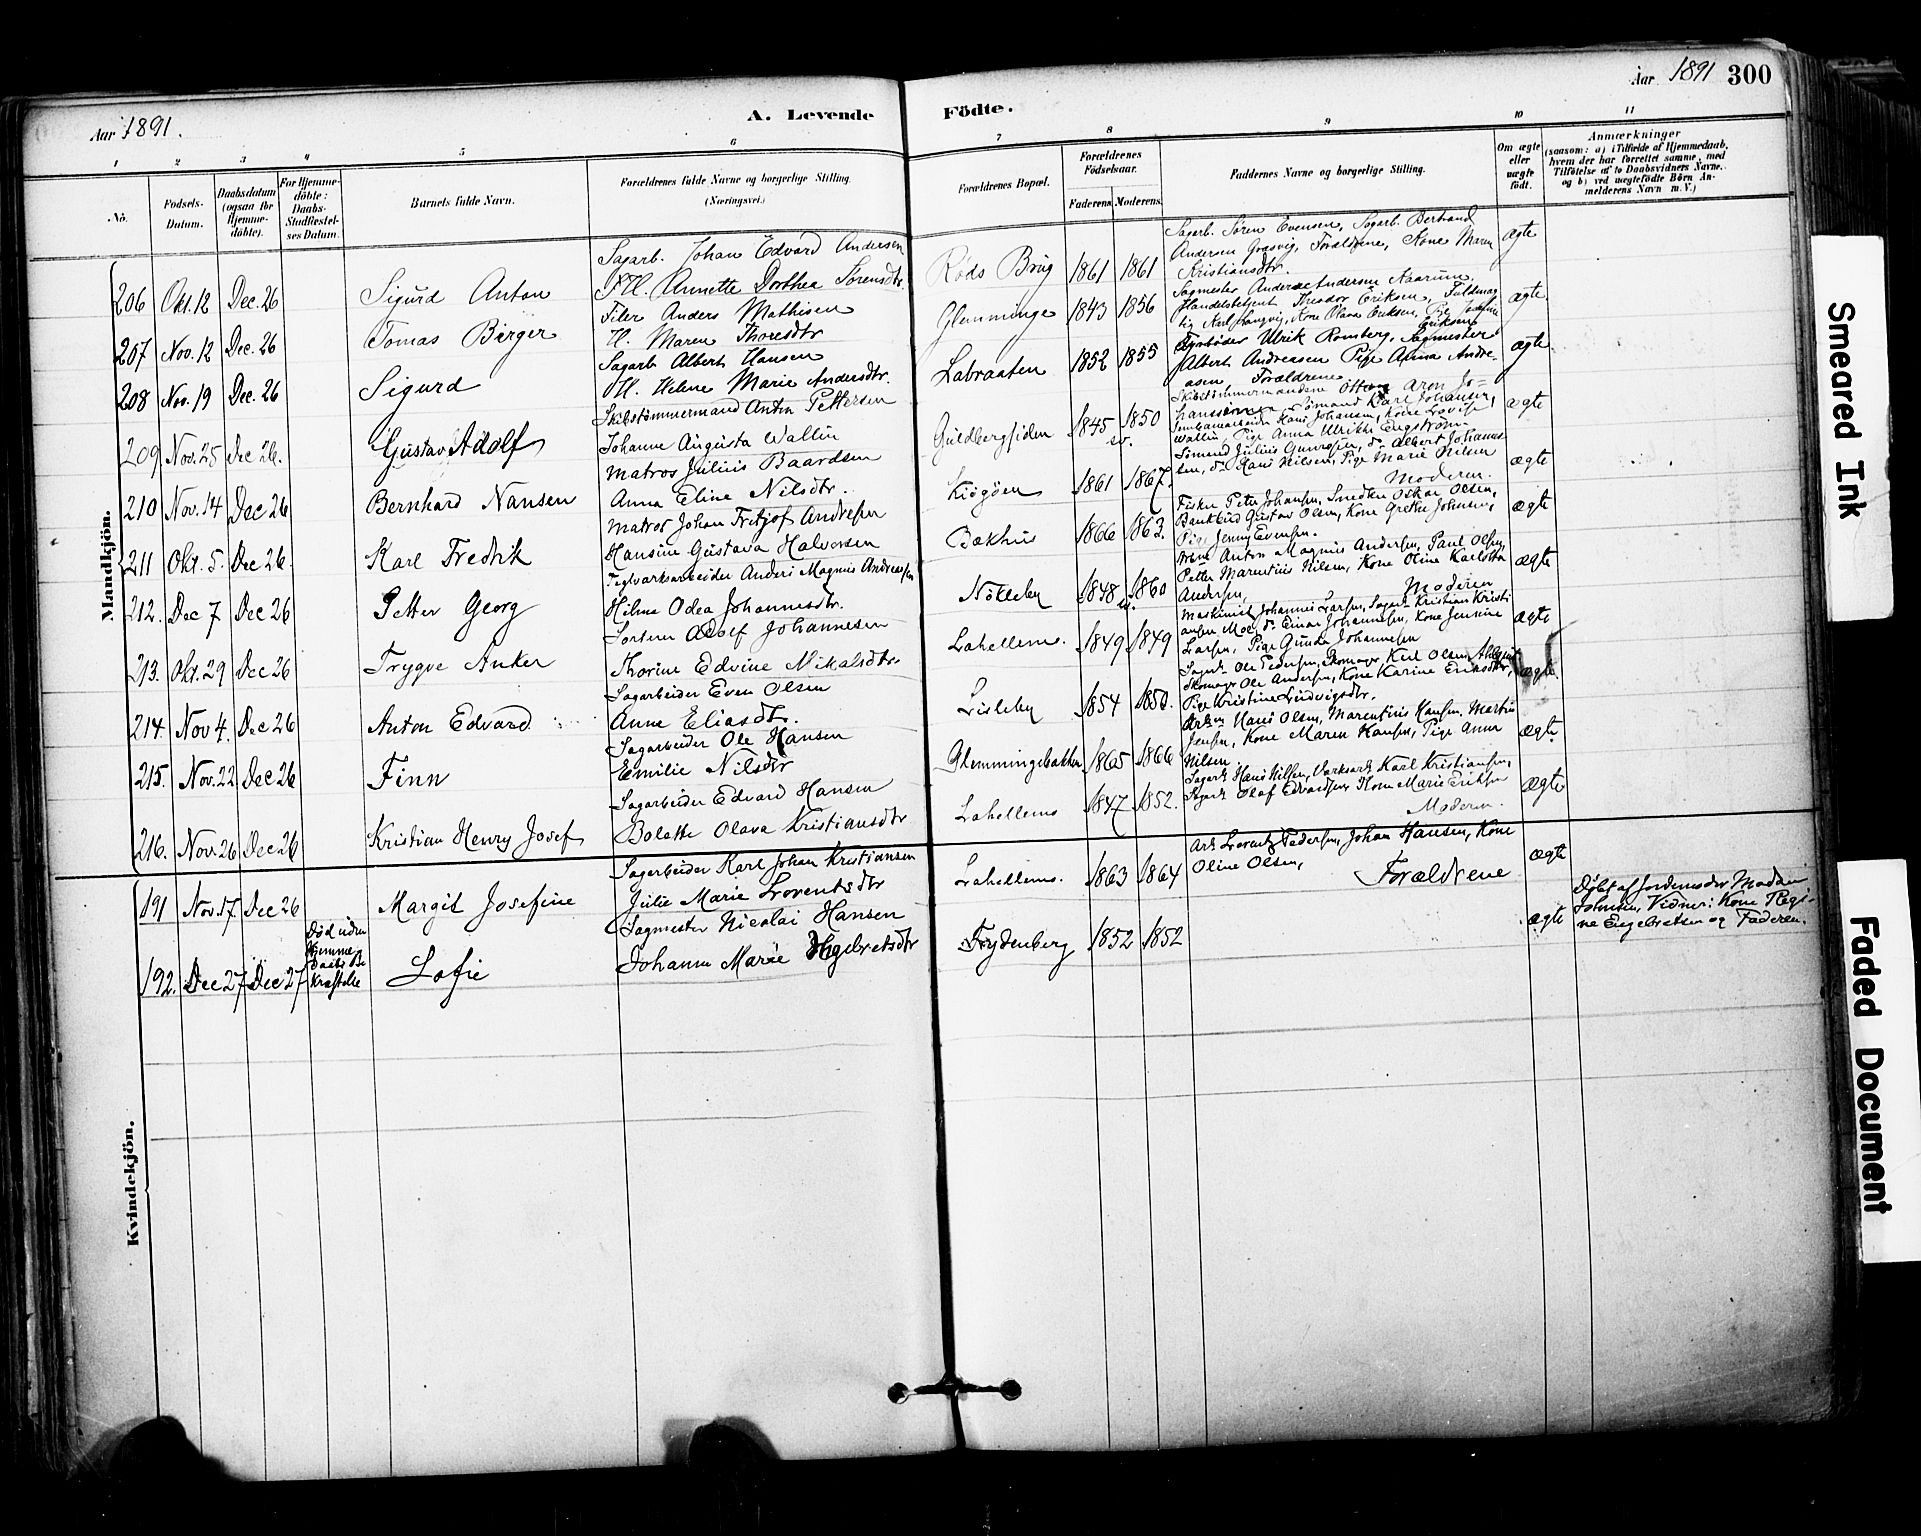 Aar 1891.
A. Levende
Födte.
Aar 1891 300
1 2 3 4 5 6 7 8 9 10 11
No.
Fødsels-Datum.
Daabsdatum (ogsaa for Hjemme-döbte).
For Hjemme-döbte: Daabs-Stadfæstel-ses Datum.
Barnets fulde Navn.
Forældrenes fulde Navne og borgerlige Stilling. (Næringsvei.)
Forældrenes Bopæl.
Forældrenes Födselsaar.
Faderens. Moderens.
Faddernes Navne og borgerlige Stilling.
Om ægte eller uægte födt.
Anmærkninger
(saasom: a) i Tilfælde af Hjemmedaab, hvem der har forrettet samme, med Tilföielse af to Daabsvidners Navne, og b) ved uægtefödte Börn Anmelderens Navn m. V.)
Mandkjön.
206 Okt. 12 Dec. 26 Sigurd Anton
Sagarb. Johan Edvard Andersen
H. Annette Dorthea Sörensdtr.
Röds Brug 1861 1861
Sagarb. Sören Evensen, Sagarb. Bertrand
Andersen Græsvig, Forældrene, Kone Maren
Kristiansdtr.
ægte
207 Nov. 12 Dec. 26 Tomas Birger
Filer Anders Mathisen
H. Maren Thoresdtr
Glemminge 1843 1856
Sagmester Andersen Aarum.
Handelsbetjent Theodor Eriksen, Fuldmæg
tig Karl Langvig, Kone Olava Eriksen, Pige
Eriksen
ægte
208 Nov. 19 Dec. 26 Sigurd
Sagarb Albert Hansen
H. Helene Marie Andersdtr.
Labraaten 1852 1855
Fyrböder Ulrik Romberg, Sagmester
Albert Andreasen Pige Anna Andre
asen, Forældrene
ægte
209 Nov. 25 Dec 26. Gustav Adolf
Skibstömmermand Anton Pettersen
Johanne Augusta Wallin
Guldbergsiden 1845 1850
sv.
Skibstömmermændene Otto Aron Jo=
hanssen Sömand Karl Johansen,
Hans Johansen, Kone Lovise
Wallin, Pige Anna Ulrikke Engström.
ægte
210 Nov. 14 Dec 26 Bernhard Nansen
Matros Julius Baardsen
Anna Eline Nilsdtr.
Kiögöen 1861 1867.
Sömand Julius Gunersen, do Albert Johannes
sen, do Hans Nilsen, Pige Marie Nilsen
Moderen.
ægte
211 Okt. 5. Dec 26. Karl Fredrik
Matros Johan Fritjof Andresen
Hansine Gustava Halvorsen
Bakhus 1866 1863.
Fisker Peter Johansen, Smeden Oskar Olsen,
Bankbud Gustav Olsen, Kone Grethe Johansen,
Pige Jenny Evensen.
ægte
212. Dec 7 Dec 26 Petter Georg
Teglværksarbeider Anders Magnus Andreassen
Hilma Odea Johannesdtr.
Nökleby 1848 1860
sv.
Anton Magnus Andersen, Paul Olsen,
Petter Marentius Nilsen, Kone Oline Karlotta
Andersen, Moderen
ægte
213. Okt. 29 Dec 26 Trygve Anker
Sorterer Adolf Johannesen
Thorine Edvine Mikalsdtr.
Lahellems. 1849 1849
Maskinist Johannes Larsen, Sagarb. Kristian Kristi
ansen Moe, do Einar Johannesen, Kone Jensine
Larsen, Pige Gunda Johannesen
ægte
214. Nov 4. Dec 26 Anton Edvard
Sagarbeider Even Olsen
Anne Eliasdtr.
Lisleby 1854 1850.
Sagarb. Ole Pedersen, Skomager Karl Olsen Ahlquist,
Skomager Ole Andersen, Kone Karine Eriksdtr,
Pige Kristine Ludvigsdtr.
ægte
215. Nov. 22 Dec 26 Finn
Sagarbeider Ole Hansen
Emilie Nilsdtr
Glemmingebakken 1865 1866
Hans Olsen, Marentius Hansen, Martin
Jensen, Kone Maren Hansen, Pige Anna
Nilsen.
ægte
216. Nov. 26 Dec 26 Kristian Henry Josef
Sagarbeider Edvard Hansen
Bolette Olava Kristiansdtr
Lahellems 1847 1852.
Sagarb. Hans Nilsen, Værksarb Karl Kristiansen,
Sagarb Olaf Edvardsen, Kone Marie Eriksen
Moderen.
ægte
Kvindekjön.
191 Nov. 17 Dec 26 Margit Josefine
Sagarbeider Karl Johan Kristiansen
Julie Marie Lorentsdtr
Lahellems. 1863 1864
Arb Lorentz Pedersen, Johan Hansen, Kone
Oline Olsen, Forældrene
ægte
192. Dec 27 Dec 27
Död uden
Hjemme
Daabs Be
kræftelse
Sofie
Sagmester Nicolai Hansen
Johanne Marie Engebretsdtr
Frydenberg 1852 1852
ægte
Döbt af Jordemoder Madam
Johnsen, Vidner: Kone Regi-
ne Engebretsen og Faderen.
Smeared Ink
Faded Document